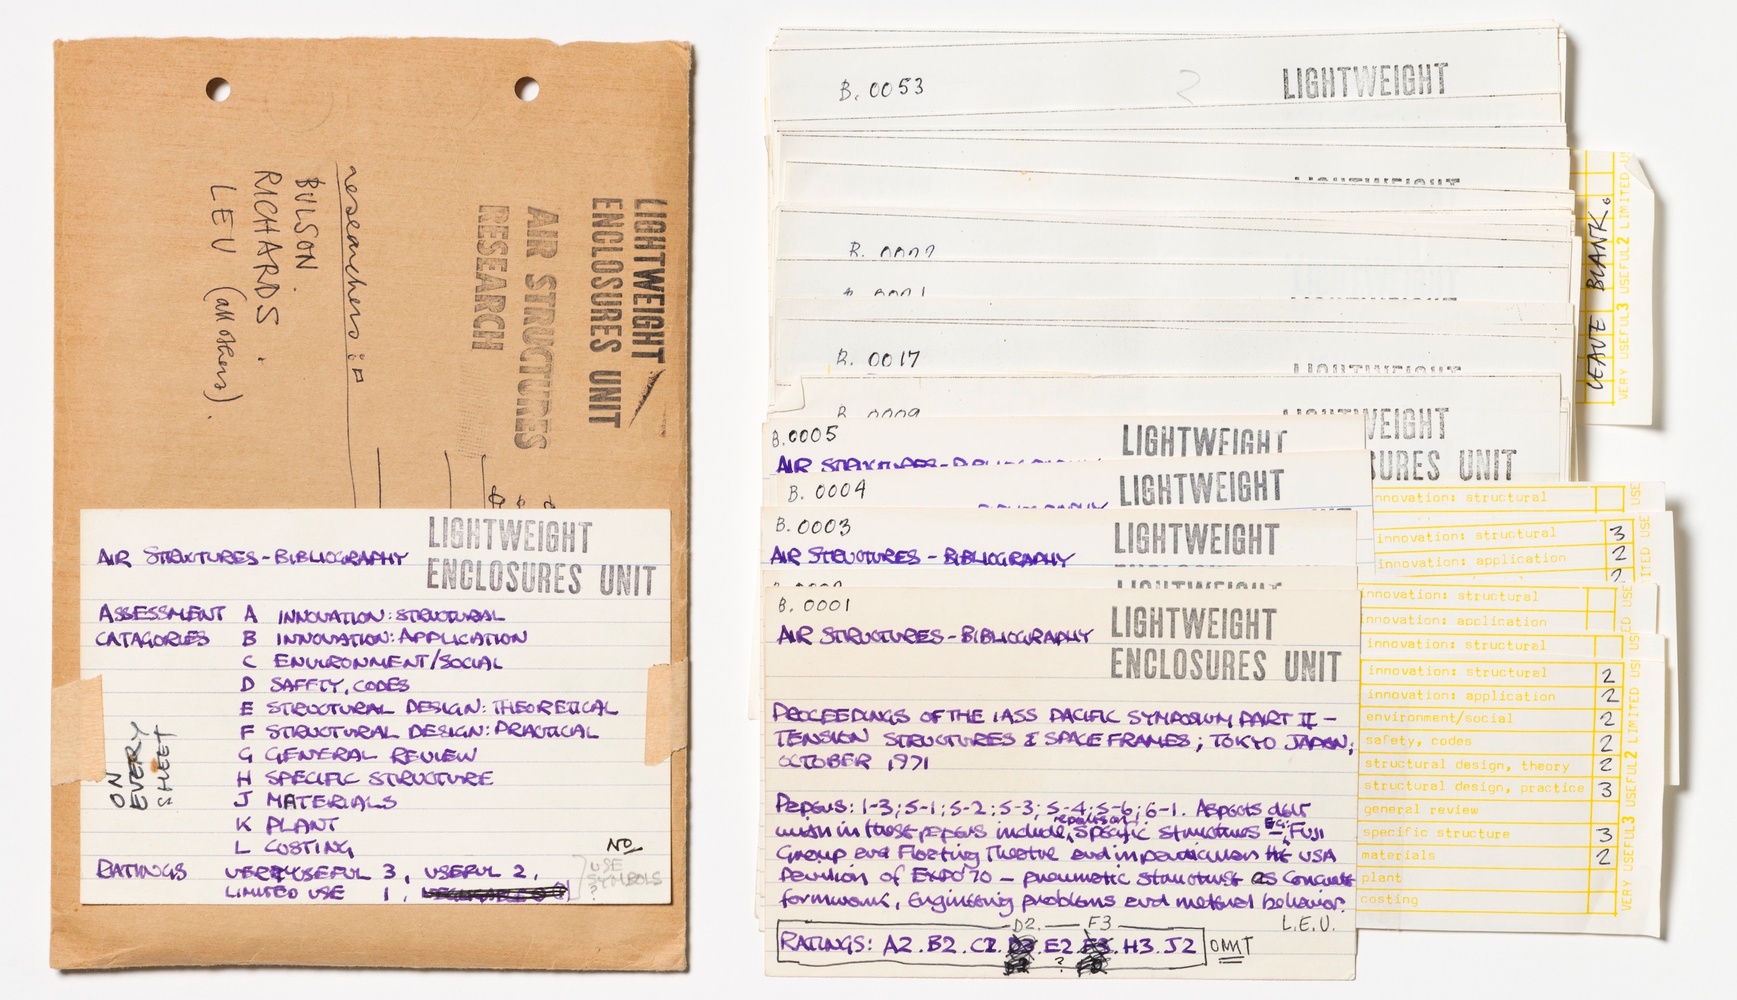 LIGHTWEIGHT
ENCLOSURES UNIT
AIR STRUCTURES
RESEARCH
researchers :-
BULSON.
RICHARDS.
LEU (all others).
LIGHTWEIGHT
ENCLOSURES UNIT
AIR STRUCTURES-BIBLIOGRAPHY
ASSESSMENT A INNOVATION: STRUCTURAL
CATAGORIES B INNOVATION: APPLICATION
C ENVIRONMENT/SOCIAL
D SAFETY, CODES
E STRUCTURAL DESIGN: THEORETICAL
F STRUCTURAL DESIGN: PRACTICAL
G GENERAL REVIEW
H SPECIFIC STRUCTURE
J MATERIALS
K PLANT
L COSTING
RATINGS VERY USEFUL 3, USEFUL 2,
LIMITED USE 1,
NO
USE
SYMBOLS
?
ON
EVERY
SHEET
B. 0053
LIGHTWEIGHT
LEAVE BLANK.
VERY USEFUL3 USEFUL2 LIMITED
B. 0017
B. 0009
B. 0005
LIGHTWEIGHT
AIR STRUCTURES-BIBLIOGRAPHY
B. 0004
LIGHTWEIGHT
B. 0003
LIGHTWEIGHT
AIR STRUCTURES - BIBLIOGRAPHY
B. 0001
LIGHTWEIGHT
ENCLOSURES UNIT
AIR STRUCTURES-BIBLIOGRAPHY
PROCEEDINGS OF THE IASS PACIFIC SYMPOSIUM PART II -
TENSION STRUCTURES & SPACE FRAMES; TOKYO JAPAN;
OCTOBER 1971
Papers: 1-3; 5-1; 5-2; 5-3; 5-4; 5-6; 6-1. Aspects dealt
with in these papers include, specific structures EG: FUJI
Group and Floating Theatre and in particular the USA
Pavilion of EXPO'70 - pneumatic structures as concrete
formwork, Engineering problems and material behavior.
L.E.U.
D2. F3
RATINGS: A2. B2. C2. E2. H3. J2
?
OMIT
WEIGHT
SURES UNIT
innovation: structural
innovation: structural 3
innovation: application 2
innovation: structural
innovation: application
innovation: structural
innovation: structural 2
innovation: application 2
environment/social 2
safety, codes 2
structural design, theory 2
structural design, practice 3
general review
specific structure 3
materials 2
plant
costing
VERY USEFUL3 USEFUL2 LIMITED USE